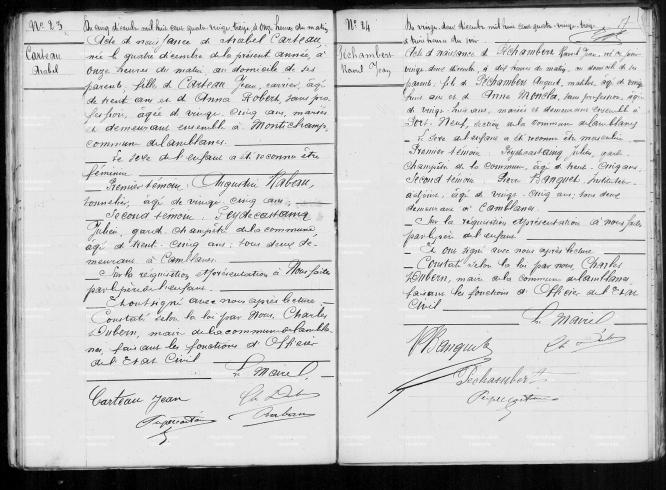 No 23.
Carteau
Mabel
Du cinq décembre mil huit cent quatre-vingt treize à onze heures du matin
Acte de naissance de Mabel Carteau,
née le quatre décembre de la présente année, à
onze heures du matin au domicile de ses
parents, fille de Carteau Jean, carrier, âgé
de trent ans et d'Anna Robert, sans pro
fession, âgée de vingt cinq ans, mariés
et demeurant ensemble à Montichamp,
commune de Camblanes.
Le sexe de l'enfant a été reconnu être
féminin
Premier témoin, Augustin Rabeau,
tonnelier, âgé de vingt cinq ans;
Second témoin, Peydecastaing
Julien, garde champêtre de la commune,
âgé de trent cinq ans; tous deux de
meurant à Camblanes.
Sur la réquisition et présentation à Nous faite
par le père de l'enfant.
Et ont signé avec nous après lecture.
Constaté selon la loi par Nous, Charles
Dubern, maire de la commune de Cambla
nes, faisant les fonctions d'Officier
de l'Etat Civil
Le Maire,
Carteau Jean
Ch Dub
Peydecastaing
Rabeau
No 24
Péchambert
Raoul Jean
Du vingt deux décembre mil huit cent quatre-vingt treize
à huit heures du soir
Acte de naissance de Péchambert Raoul Jean, né ce jour
vingt deux décembre, à dix heures du matin, au domicile de ses
parents, fils de Péchambert August, âgé de vingt
ans et de Anna, sans profession, âgée
de vingt huit ans, mariés et demeurant ensemble à
Port Neuf, section de la commune de Camblanes
Le sexe de l'enfant a été reconnu être masculin
Premier témoin Peydecastaing Julien, garde
Champêtre de la commune, âgé de trent cinq ans.
Second témoin Pierre Banquet, Instituteur
, âgé de vingt cinq ans, tous deux
demeurant à Camblanes.
Sur la réquisition et présentation à nous faite
par le père de l'enfant.
Et ont signé avec nous après lecture
Constaté selon la loi par nous, Charles
Dubern, maire de la commune de Camblanes
faisant les fonctions d'Officier de l'Etat
Civil
Le Maire,
Banquet
Ch Dub
Péchambert
Peydecastaing